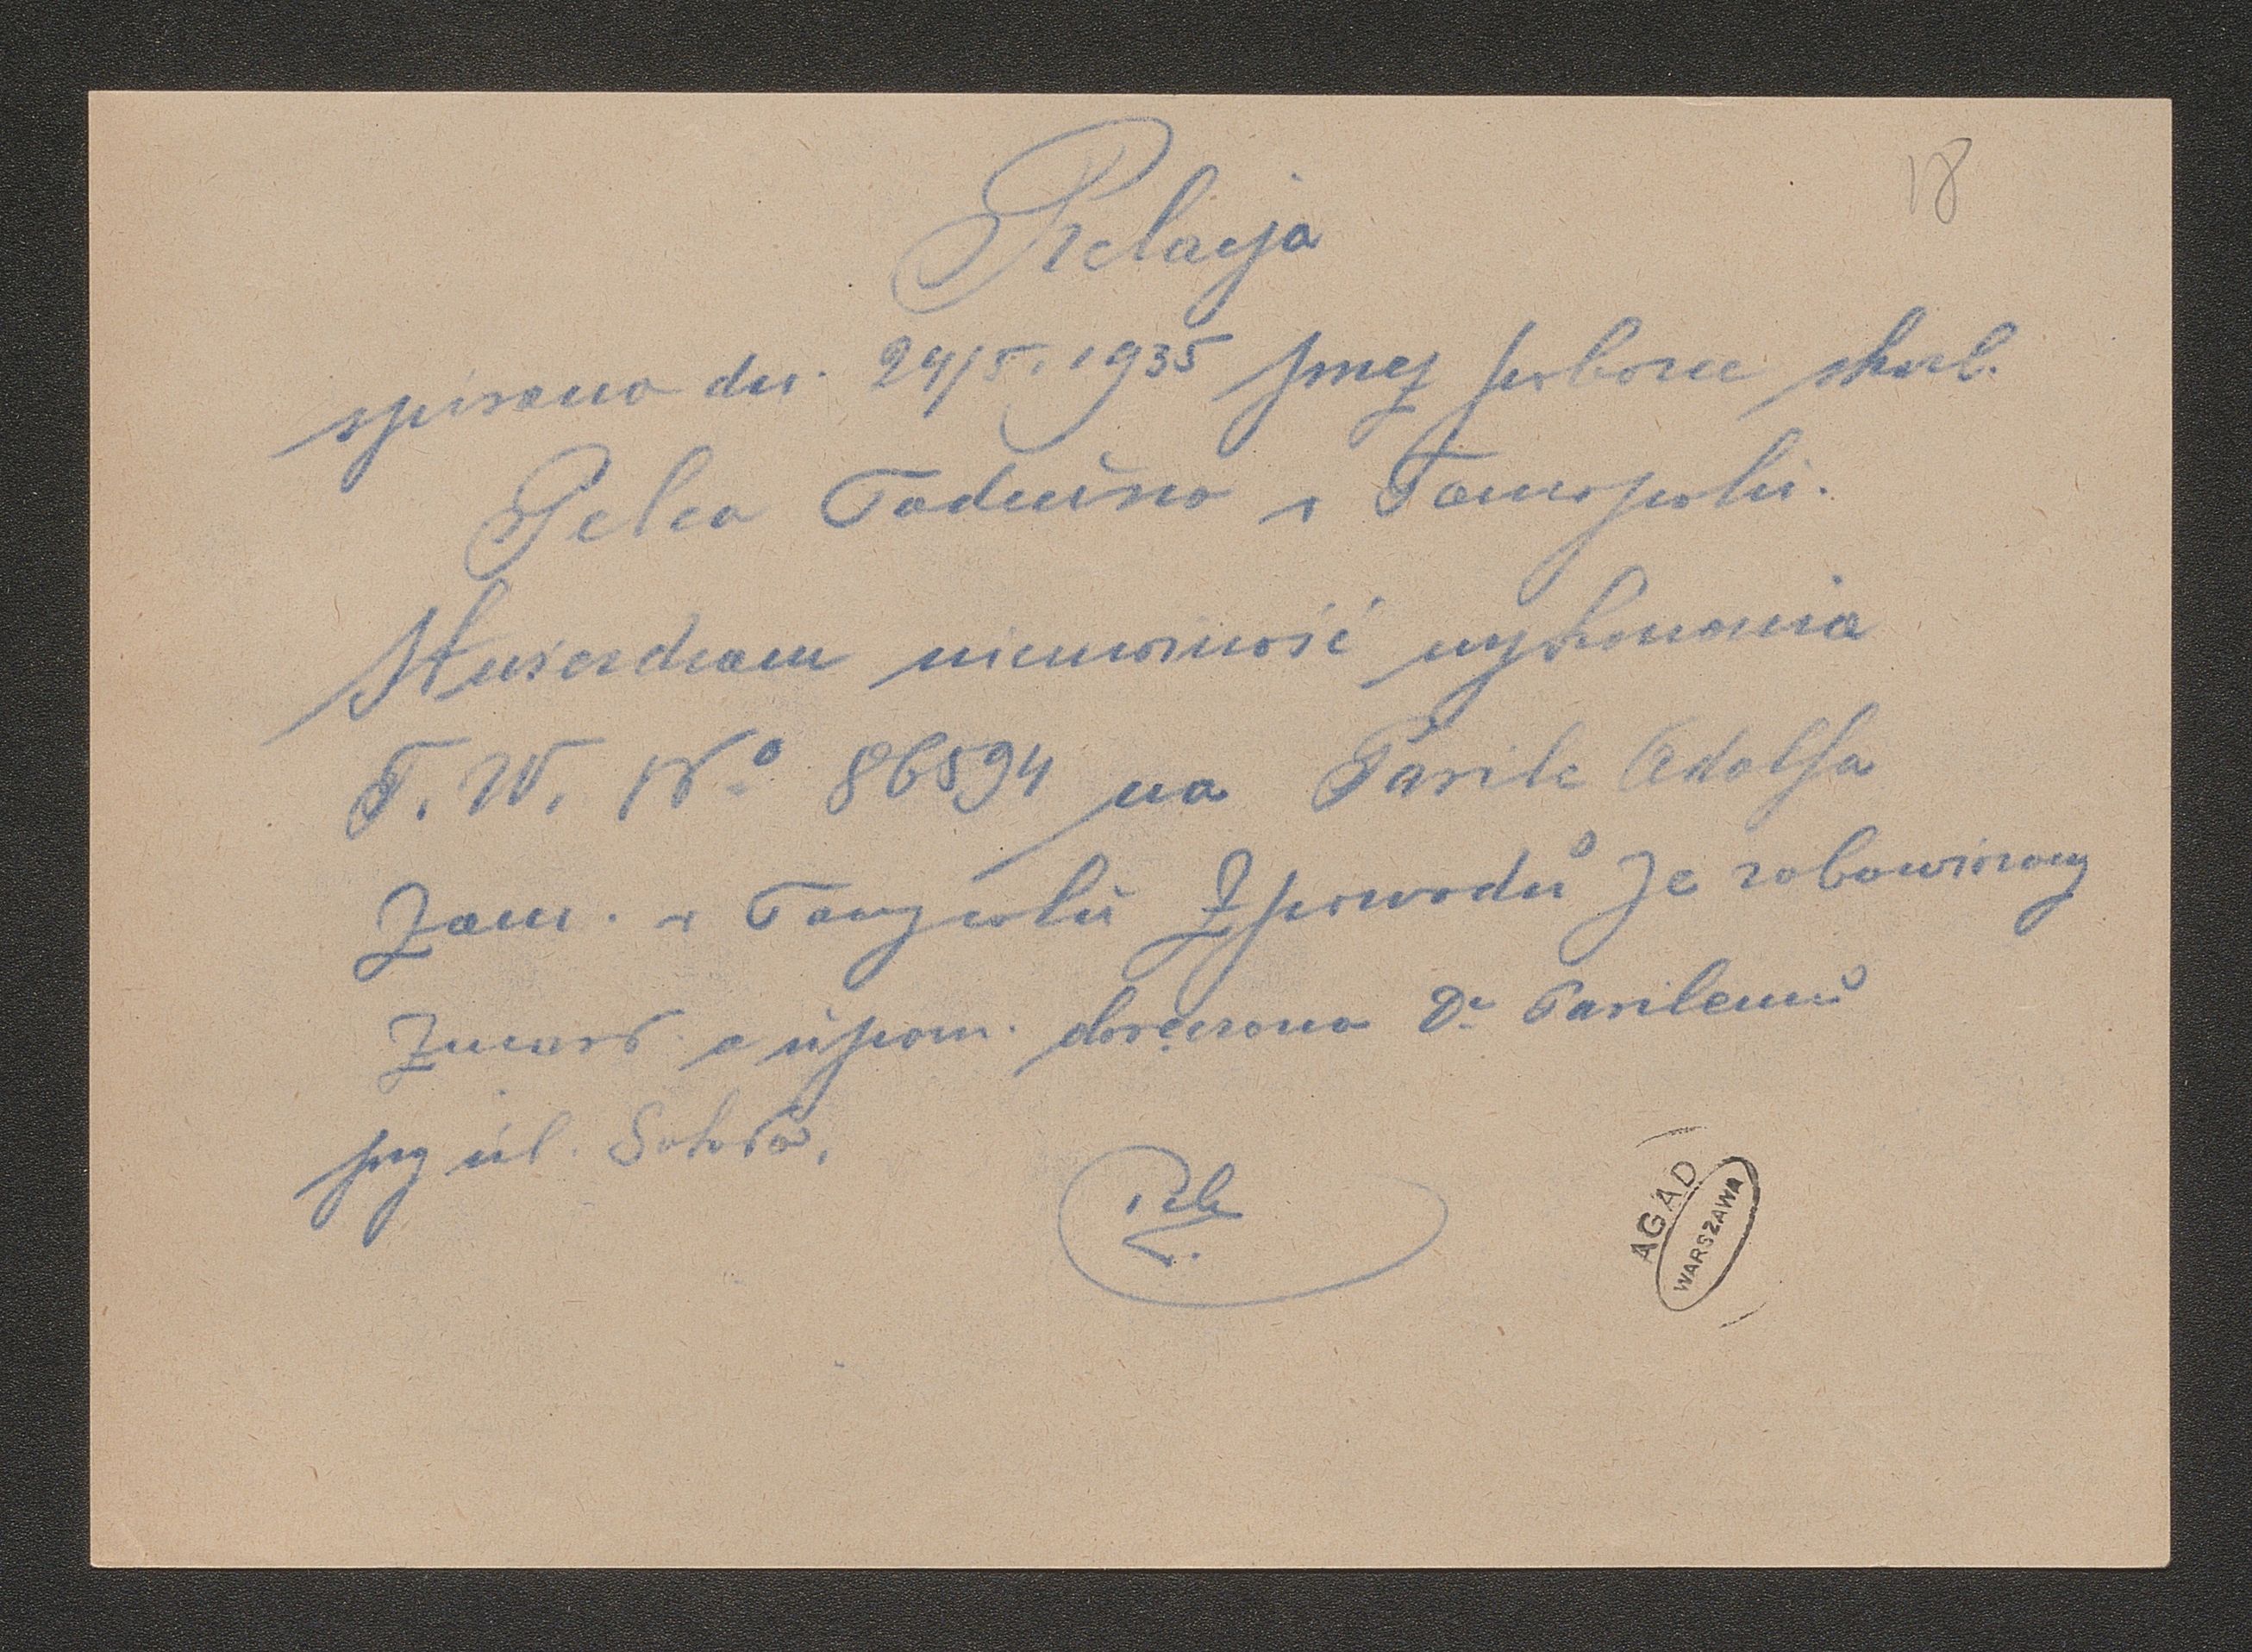 18
Relacja
spisana dn. 24/5. 1935 przez poborcę skarb.
Pelca Tadeusza w Tarnopolu.
Stwierdzam niemożność wykonania
T. W. No 86594 na Tasile Adolfa
zam. w Tarnopolu z powodu że zobowiązany
a upom. doręczono Dr Tasilemu
przy ul.
Pelc
AGAD
WARSZAWA